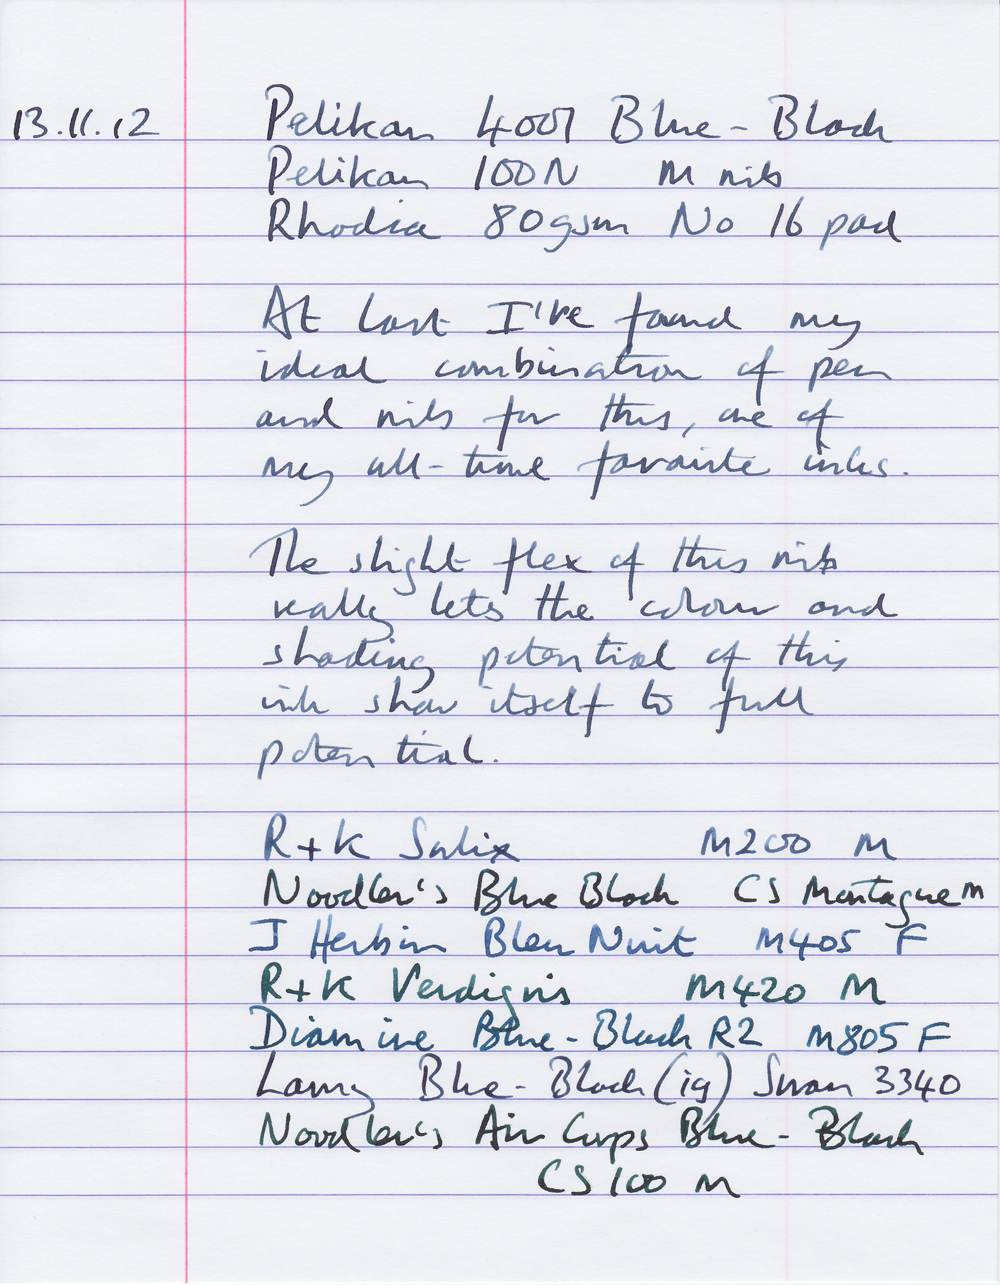 13.11.12 Pelikan 4001 Blue-Black
Pelikan 100N M nib
Rhodia 80gsm No 16 pad
At last I've found my
ideal combination of pen
and nib for this, one of
my all-time favourite inks.
The slight flex of this nib
really lets the colour and
shading potential of this
ink show itself to full
potential.
R+K Salix M200 M
Noodler's Blue Black CS Montague M
J Herbin Bleu Nuit M405 F
R+K Verdigris M420 M
Diamine Blue-Black R2 M805 F
Lamy Blue-Black (ig) Swan 3340
Noodler's Air Corps Blue-Black
CS 100 M